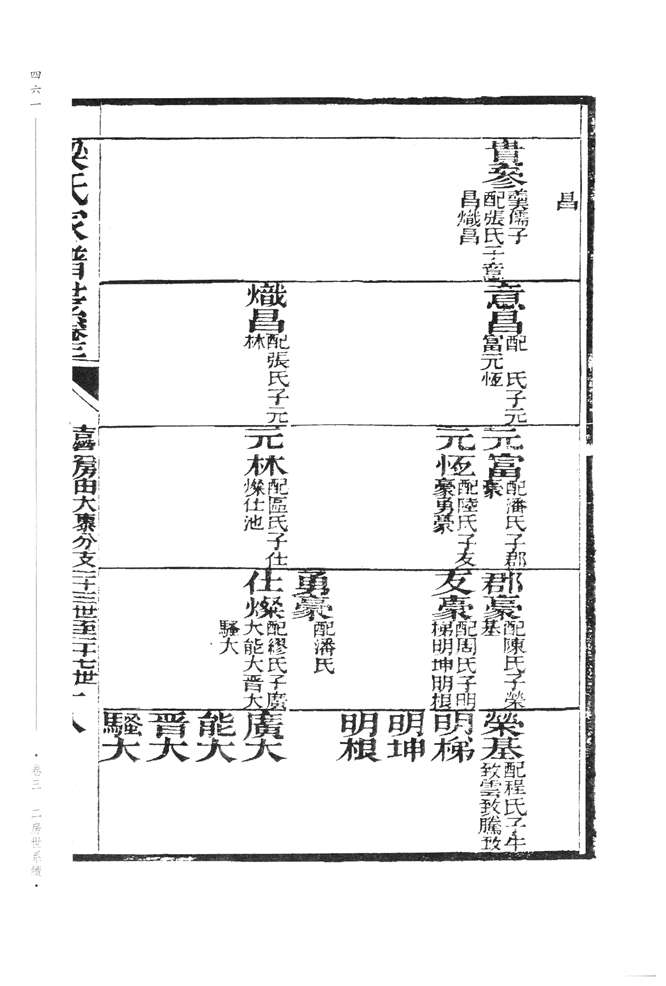 昌
貴參
冀儒子
配張氏子意
昌熾昌
意昌
配 氏子元
富元恆
熾昌
配張氏子元
林
元富
配潘氏子郡
豪
元恆
配陸氏子友
豪勇豪
元林
配區氏子仕
燦仕池
郡豪
配陳氏子榮
基
友豪
配周氏子明
梯明坤明根
勇豪
配潘氏
仕燦
配繆氏子廣
大能大晉大
騷大
榮基
配程氏子牛
致雲致騰致
明梯
明坤
明根
廣大
能大
晉大
騷大
梁氏家譜世系卷三
房由大康分支二十三世至二十七世
十八
四六一
卷三 二房世系續